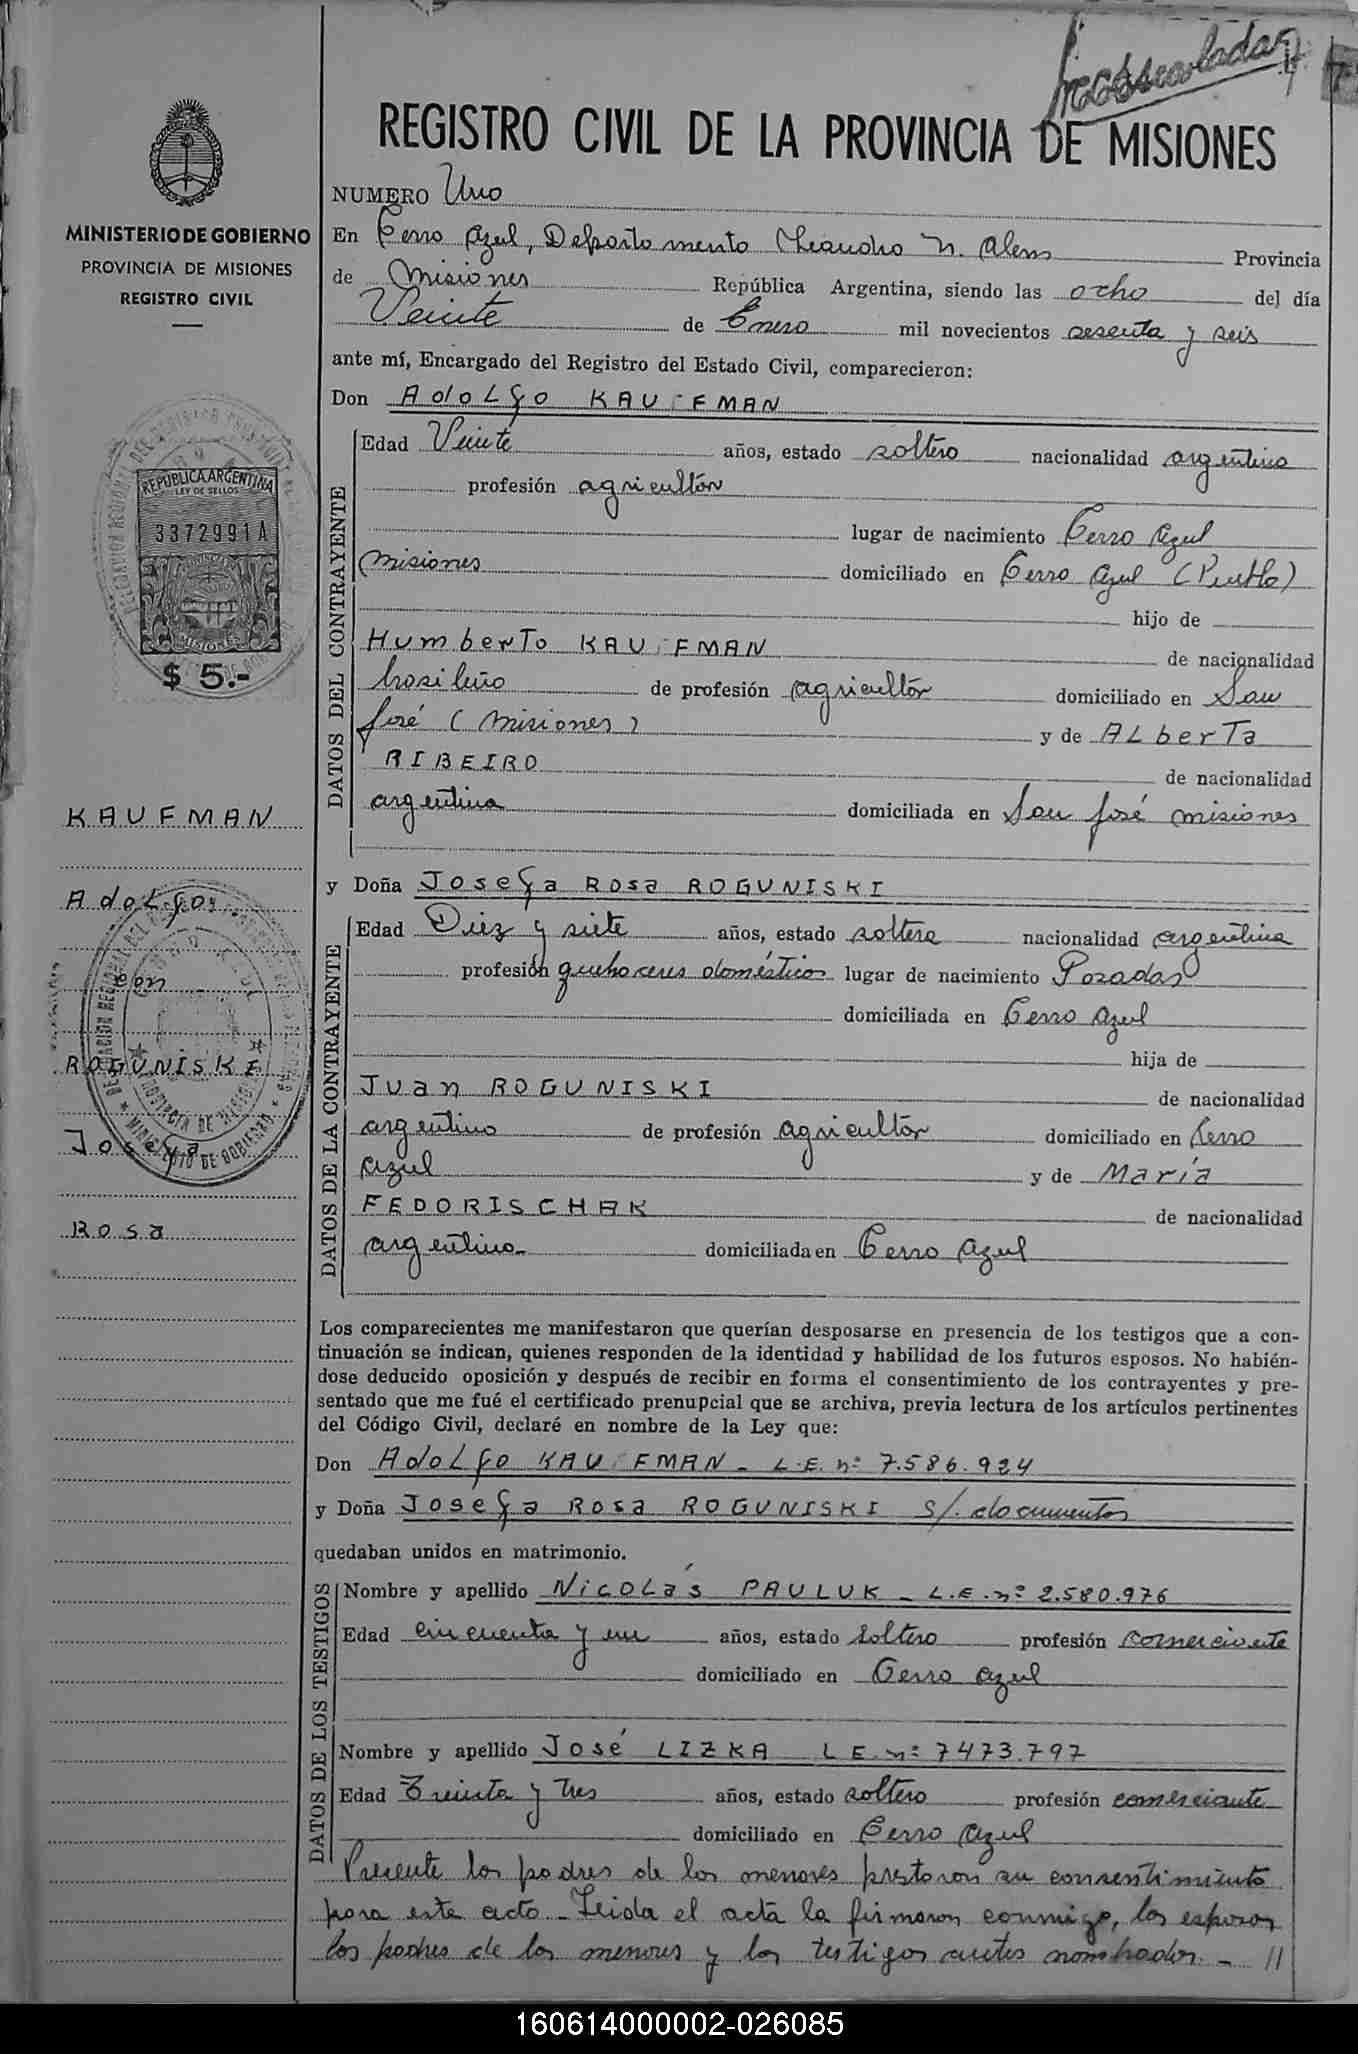 REGISTRO CIVIL DE LA PROVINCIA DE MISIONES
MINISTERIO DE GOBIERNO
PROVINCIA DE MISIONES
REGISTRO CIVIL
REPUBLICA ARGENTINA
LEY DE SELLOS
3372991 A
MISIONES
$ 5.-
KAUFMAN
Adolfo
con
ROGUNISKI
Josefa
Rosa
NUMERO Uno
En Cerro Azul, Departamento Leandro N. Alem Provincia
de Misiones República Argentina, siendo las ocho del día
Veinte de Enero mil novecientos sesenta y seis
ante mí, Encargado del Registro del Estado Civil, comparecieron:
Don Adolfo KAUFMAN
DATOS DEL CONTRAYENTE
Edad Veinte años, estado soltero nacionalidad argentina
profesión agricultór
lugar de nacimiento Cerro Azul
Misiones domiciliado en Cerro Azul (Pueblo)
hijo de
Humberto KAUFMAN de nacionalidad
brasileño de profesión agricultór domiciliado en San
José (Misiones) y de ALberTa
RIBEIRO de nacionalidad
argentina domiciliada en San José Misiones
y Doña Josefa Rosa ROGUNISKI
DATOS DE LA CONTRAYENTE
Edad Diez y siete años, estado soltera nacionalidad argentina
profesión quehaceres domésticos lugar de nacimiento Posadas
domiciliada en Cerro Azul
hija de
Juan ROGUNISKI de nacionalidad
argentino de profesión agricultór domiciliado en Cerro
Azul y de María
FEDORISCHAK de nacionalidad
argentina domiciliada en Cerro Azul
Los comparecientes me manifestaron que querían desposarse en presencia de los testigos que a con-
tinuación se indican, quienes responden de la identidad y habilidad de los futuros esposos. No habién-
dose deducido oposición y después de recibir en forma el consentimiento de los contrayentes y pre-
sentado que me fué el certificado prenupcial que se archiva, previa lectura de los artículos pertinentes
del Código Civil, declaré en nombre de la Ley que:
Don Adolfo KAUFMAN - L.E. nº 7.586.924
y Doña Josefa Rosa ROGUNISKI s/. documentos
quedaban unidos en matrimonio.
DATOS DE LOS TESTIGOS
Nombre y apellido Nicolás PAULUK - L.E. nº 2.580.976
Edad cincuenta y un años, estado soltero profesión comerciante
domiciliado en Cerro Azul
Nombre y apellido José LIZKA L E. nº 7473.797
Edad Treinta y tres años, estado soltero profesión comerciante
domiciliado en Cerro Azul
Presente los padres de los menores prestaron su consentimiento
para este acto - Leida el acta la firmaron conmigo, los esposos
los padres de los menores y los testigos antes nombrados. - //
160614000002-026085